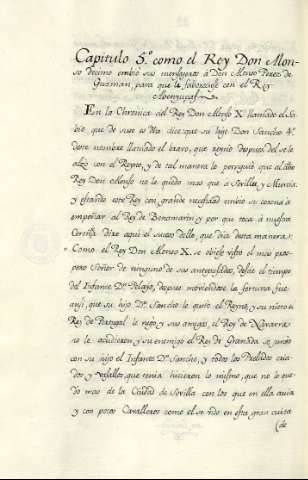 Capitulo 5.º como el Rey Don Alon-
so decimo embió sus mensageros à Don Alonso Perez de
Guzman para que le faboreciese con el Rey
Abenjucaf.
En la Chronica del Rey Don Alonso X.º llamado el Sa-
bio, que de suso ia dho dice que su hijo Don Sancho 4.º
deste nombre llamado el bravo, que reyno despues del se le
alzó con el Reyno, y de tal manera le persiguió que al dho
Rey Don Alonso no le quedo mas que a Sevilla, y Murcia:
y estando este Rey con grande necesidad embio su corona à
empeñar al Rey de Benamarin y por que toca à nuestra
Cronica diré aqui el suceso dello, que dice desta manera:
Como el Rey Don Alonso X. se obiese visto el mas pros-
pero Señor de ninguno de sus antepasados, desde el tiempo
del Infante D.n Pelayo, despues moviendole la fortuna fue
ansi, que su hijo D.n Sancho le quitó el Reyno, y su nieto el
Rey de Portugal le negó, y sus amigos, el Rey de Navarra
no le acudieron y su enemigo el Rey de Granada se juntó
con su hijo el Infante D.n Sancho, y todos los Prelados, cria-
dos y vasallos, que tenia hicieron lo mismo, que no le que-
dó mas de la Ciudad de Sevilla con los que en ella avia
y con pocos Cavalleros como él se vido en esta gran cuita
(de